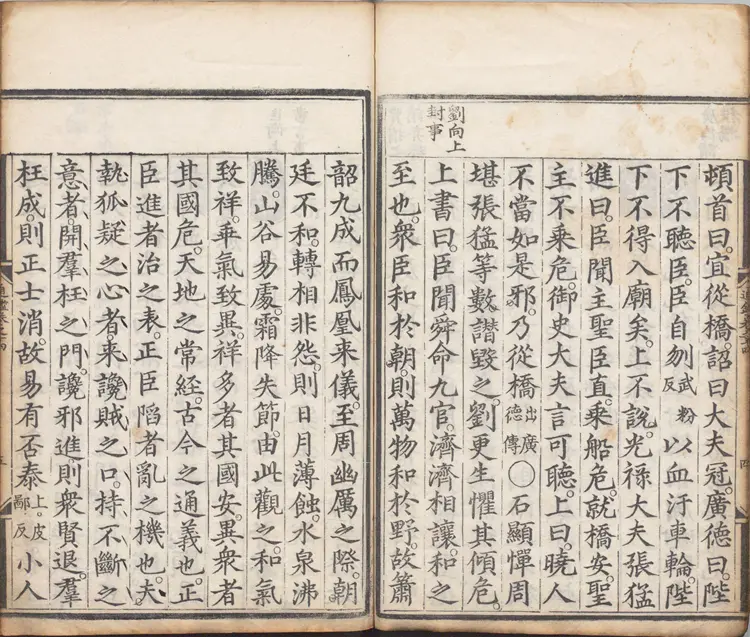 劉向上
封事
頓首曰。宜從橋。詔曰大夫冠。廣德曰。陛
下不聽臣。臣自刎武粉反以血汙車輪。陛
下不得入廟矣。上不說。光祿大夫張猛
進曰。臣聞主聖臣直。乘船危。就橋安。聖
主不乘危。御史大夫言可聽。上曰。曉人
不當如是邪。乃從橋出廣德傳○石顯憚周
堪張猛等。數譖毀之。劉更生懼其傾危。
上書曰。臣聞舜命九官。濟濟相讓。和之
至也。衆臣和於朝。則萬物和於野。故簫
韶九成而鳳凰來儀。至周幽厲之際。朝
廷不和。轉相非怨。則日月薄蝕。水泉沸
騰。山谷易處。霜降失節。由此觀之。和氣
致祥。乖氣致異。祥多者其國安。異衆者
其國危。天地之常經。古今之通義也。正
臣進者治之表。正臣陷者亂之機也。夫
執狐疑之心者。來讒賊之口。持不斷之
意者。開羣枉之門。讒邪進則衆賢退。羣
枉成。則正士消。故易有否泰上皮鄙反小人